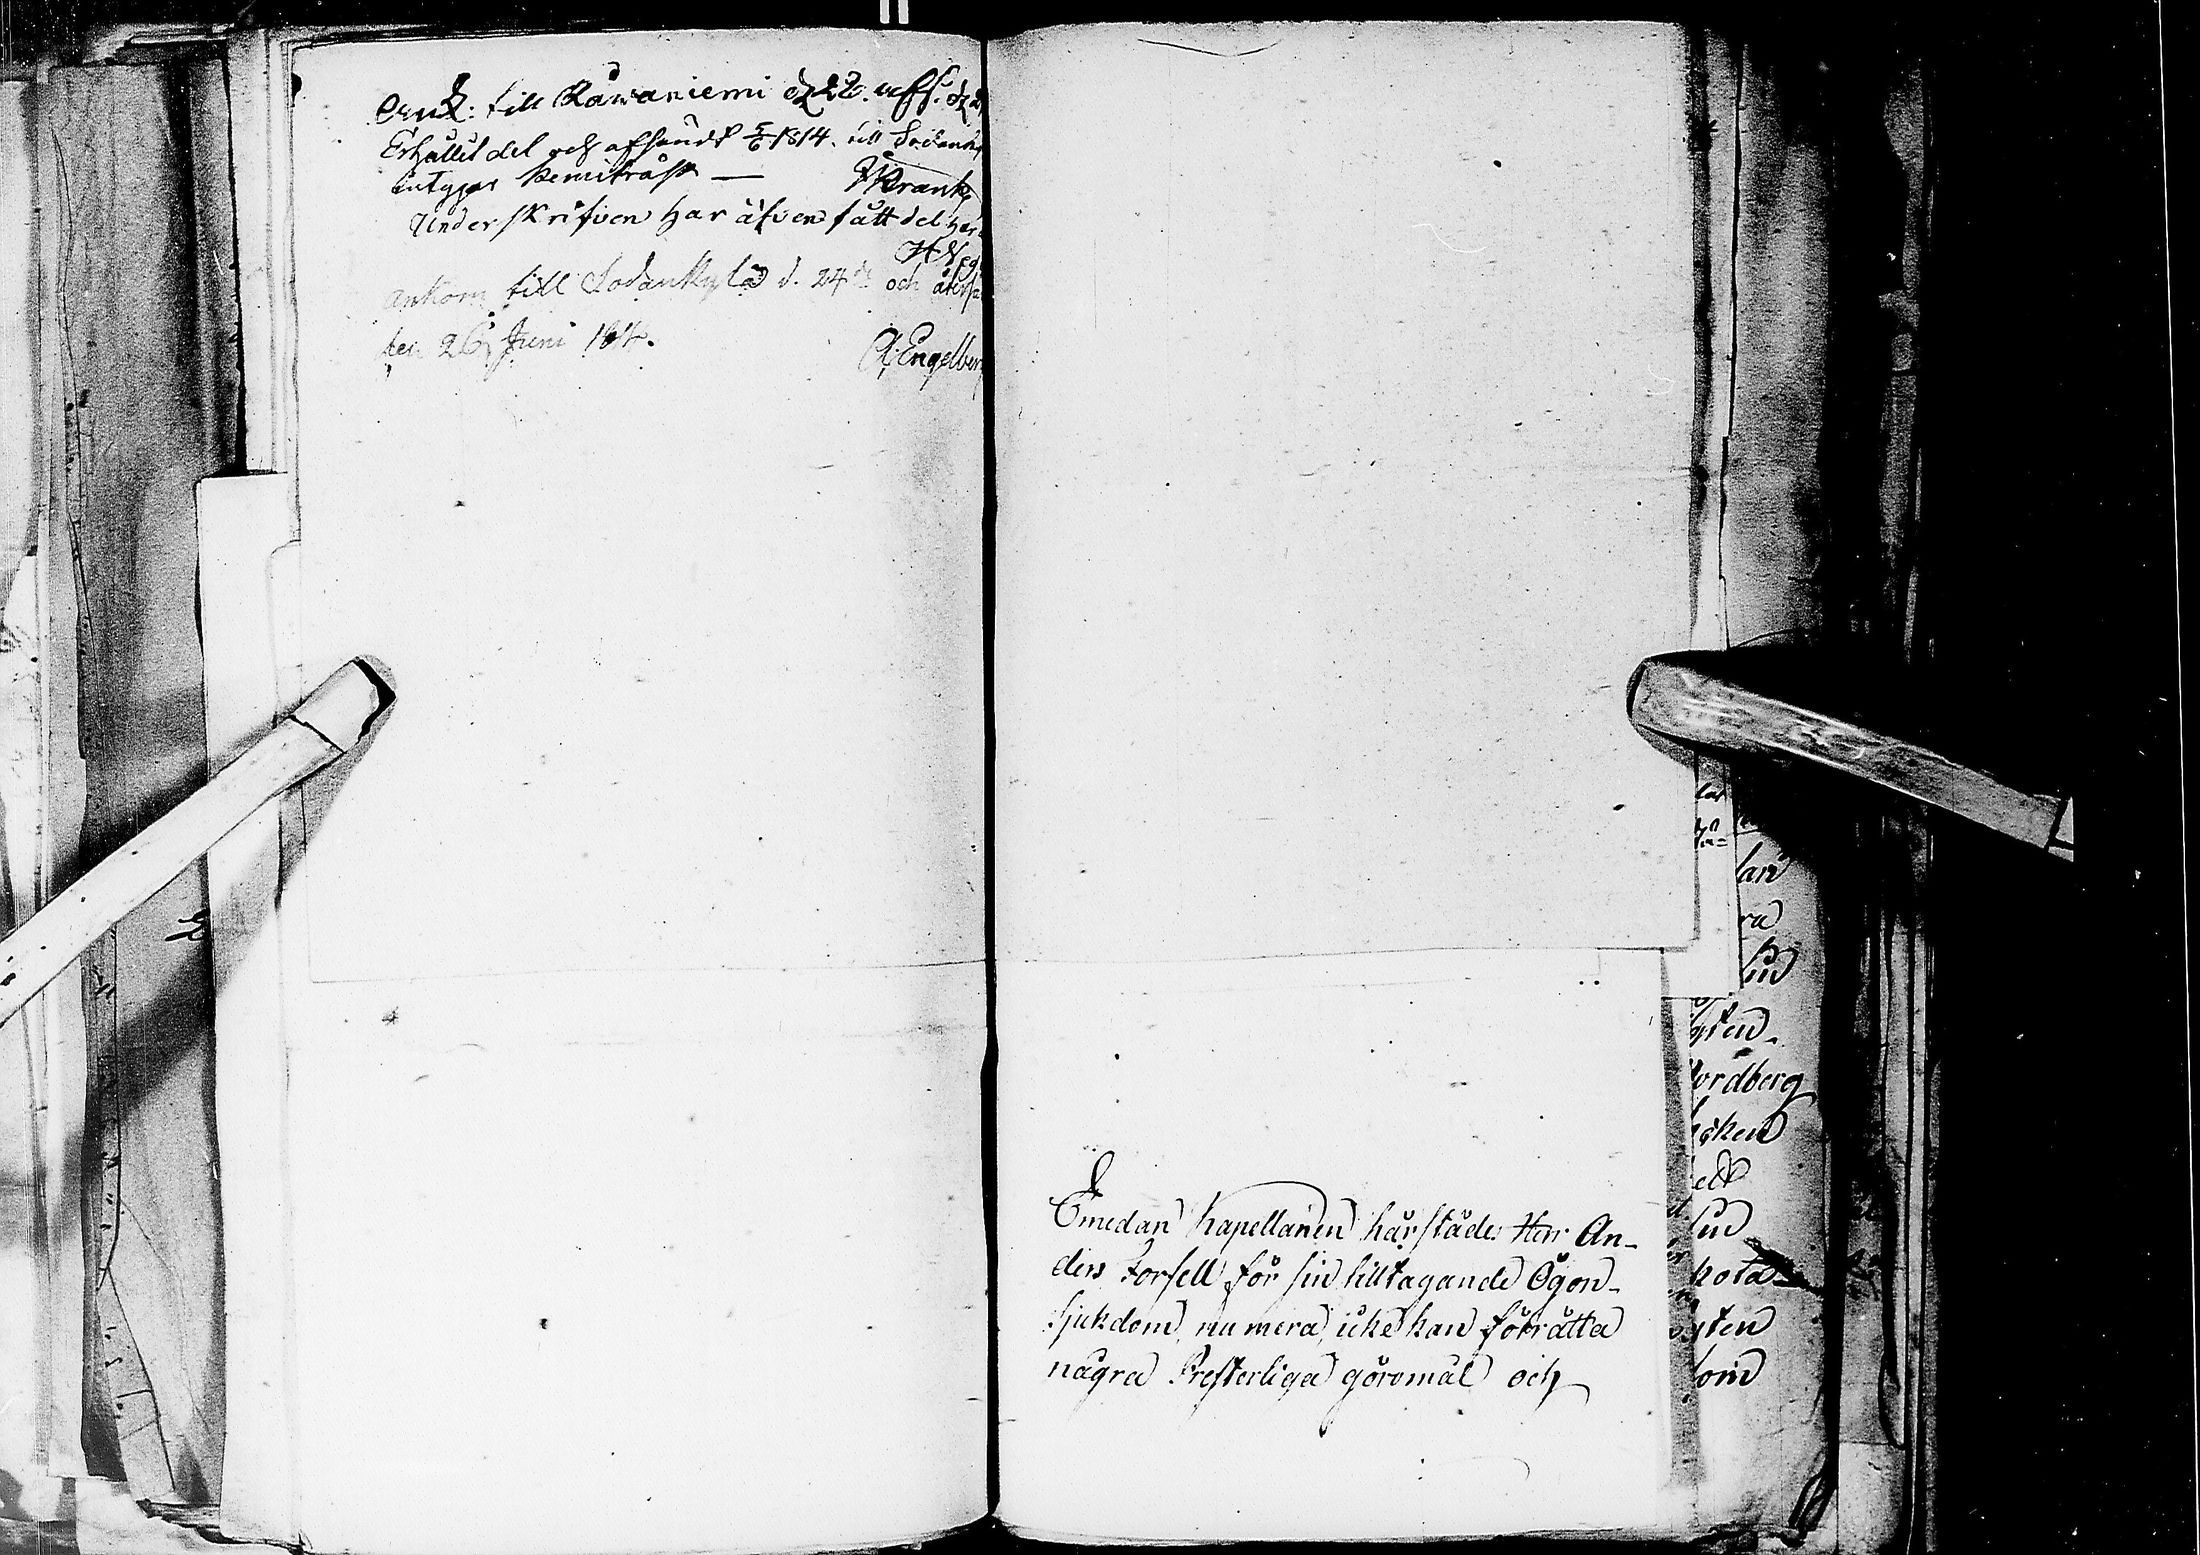 Ank: till Råwaniemi d 22. affs. d 2
Erhållit del och afsändt 5/6 1814. till Sodanky
intygar Kemiträsk — Krank
Underskrifven har äfven fått del här
ankom till Sodankylä d. 24de och återsä
den 26 Juni 1814.
A: Engelber
Emedan Kapellanen härstädes Herr An-
ders Forsell för sin tilltagande Ögon-
sjukdom, nu mera icke kan förrätta
några Presterliga göromål och
lan
ra
sin
gten
ordberg
öken
sin
kola
gten
som